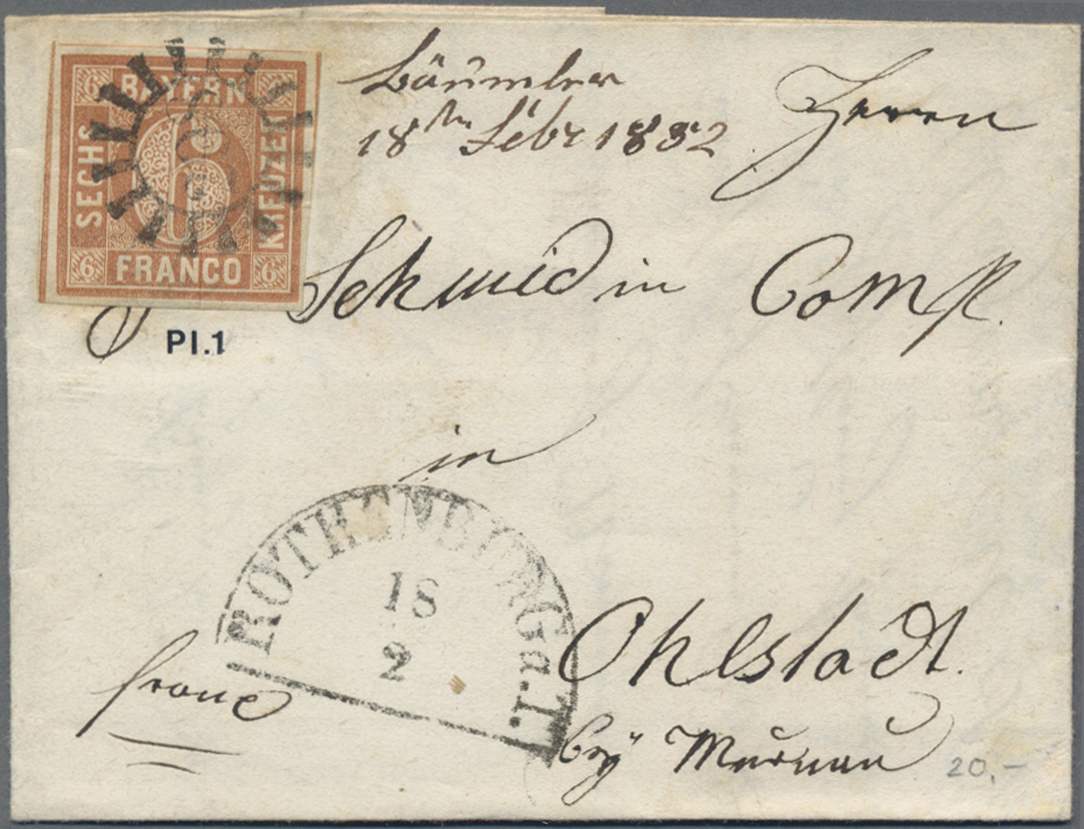 6 BAYERN
SECHS
6
KREUZER
6 FRANCO 6
Bäumler
18ten Febr 1852
Herrn
Schmid in Comp.
Pl.1
in
ROTHENBURG a.T.
18
2
Ohlstadt.
franco
bey Murnau
20.-